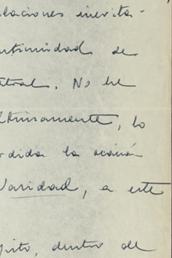 laciones inevita-
ntimidad de
tral. No he
ltimamente, lo
rdida la ocasión
Varidad, a este
sito, dentro de